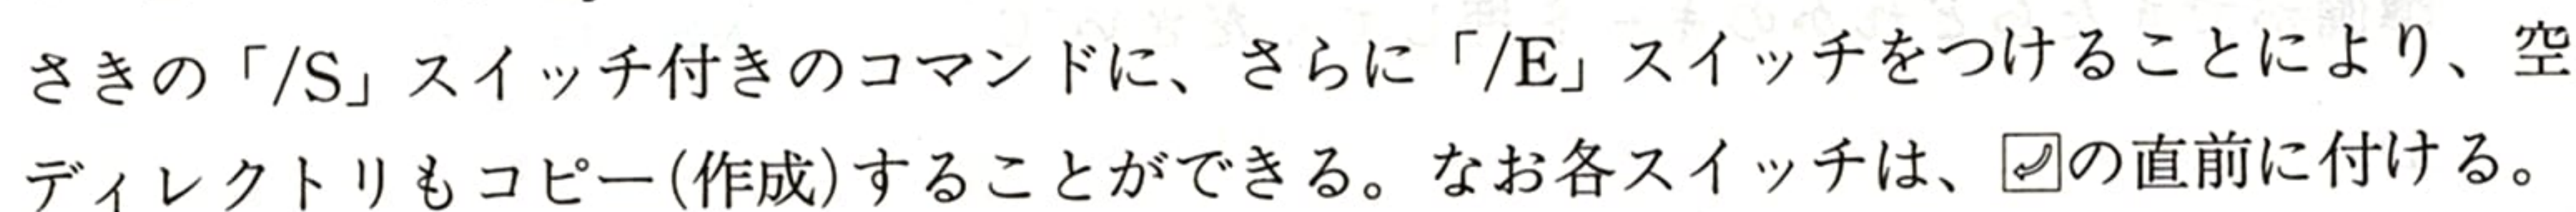 さきの「/S」スイッチ付きのコマンドに、さらに「/E」スイッチをつけることにより、空
ディレクトリもコピー(作成)することができる。なお各スイッチは、⏎の直前に付ける。